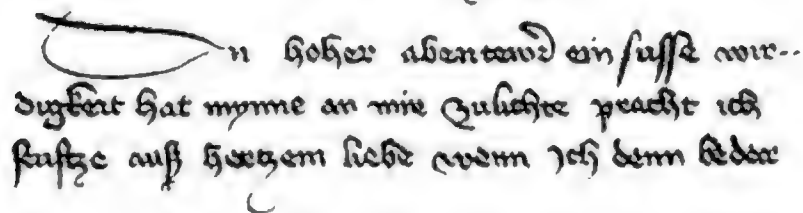 In hoher abentewr ein susse wir-
digkeit hat mynne an mir zulichte pracht ich
seuftze auß hertzem liebe wenn ich denn bedar